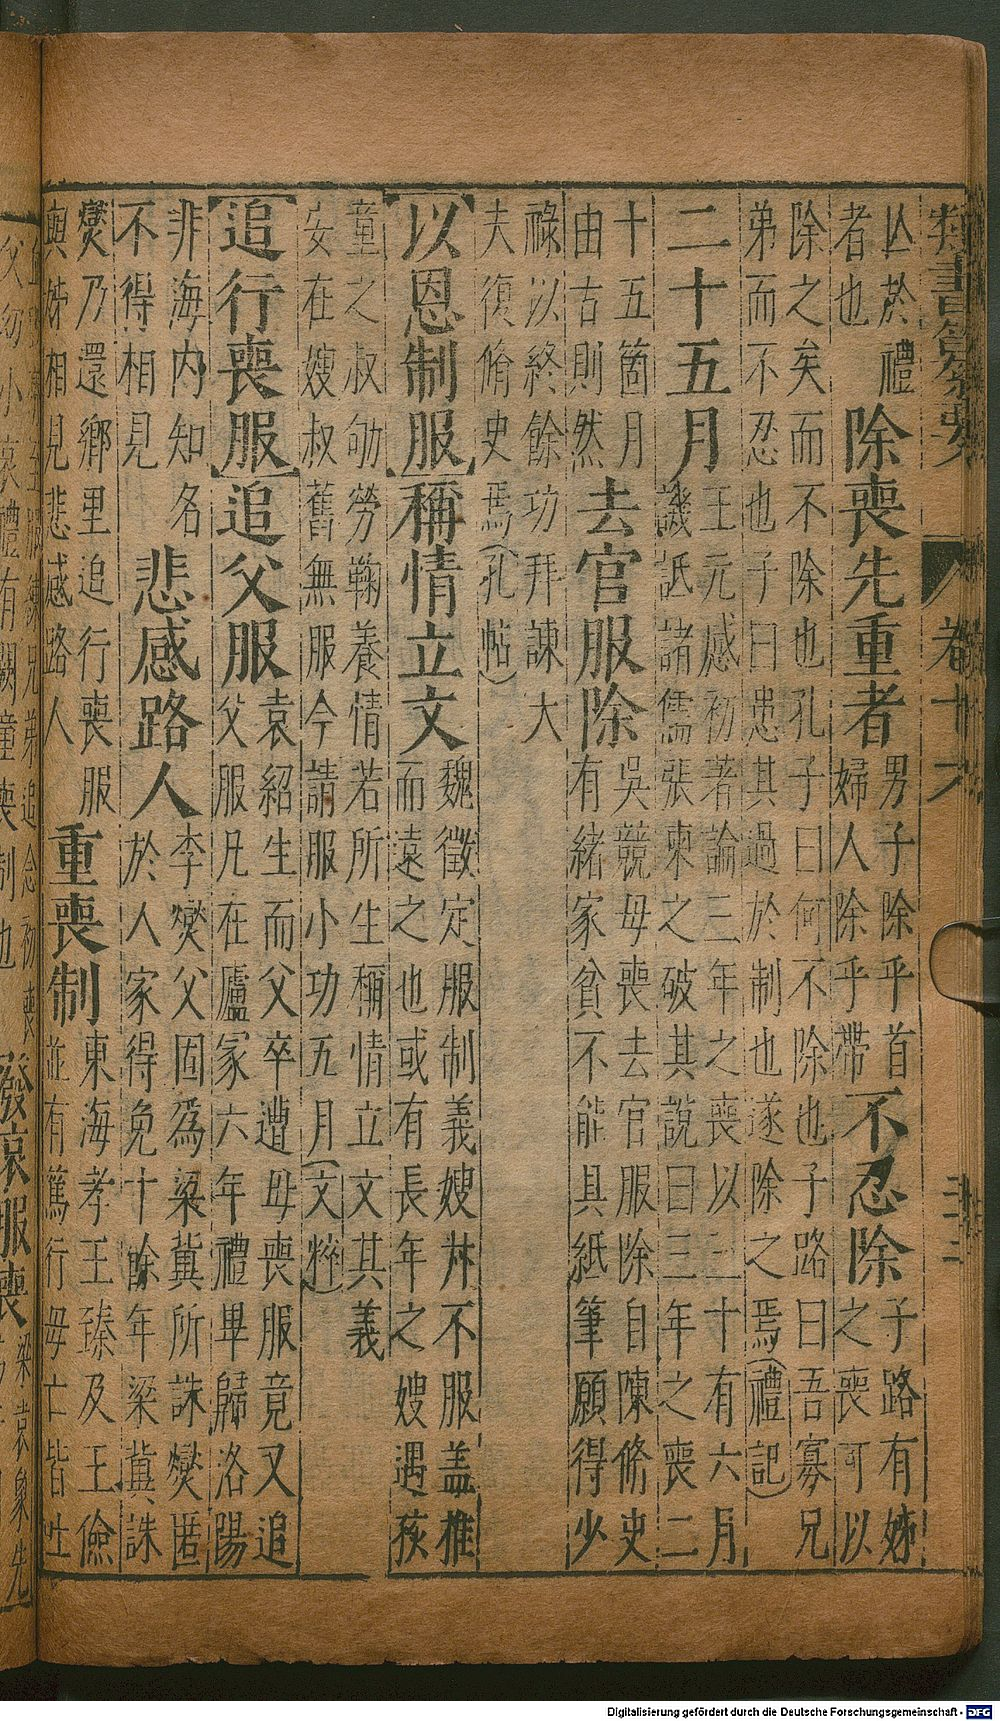 類書纂要 卷十六 三二
亾於禮
者也
除喪先重者
男子除乎首
婦人除乎帶
不忍除
子路有姊
之喪可以
除之矣而不除也孔子曰何不除也子路曰吾寡兄
弟而不忍也子曰患其過於制也遂除之焉(禮記)
二十五月
王元感初著論三年之喪以三十有六月
譏詆諸儒張柬之破其說曰三年之喪二
十五箇月
由古則然
去官服除
吳競母喪去官服除自陳修史
有緒家貧不能具紙筆願得少
祿以終餘功拜諫大
夫復脩史焉(孔帖)
【以恩制服】稱情立文
魏徵定服制義嫂叔不服盖推
而遠之也或有長年之嫂遇孩
童之叔劬勞鞠養情若所生稱情立文其義
安在嫂叔舊無服今請服小功五月(文粹)
【追行喪服】追父服
袁紹生而父卒遭母喪服竟又追
父服凡在廬冢六年禮畢歸洛陽
非海内知名
不得相見
悲感路人
李燮父固爲梁冀所誅燮匿
於人家得免十餘年梁冀誅
燮乃還鄉里追行喪服
與姊相見悲感路人
重喪制
東海孝王臻及王儉
並有篤行母亡皆吐
至服練兄弟追念初喪
父幼小哀禮有闕重喪制也
發哀服喪
Digitalisierung gefördert durch die Deutsche Forschungsgemeinschaft - DFG